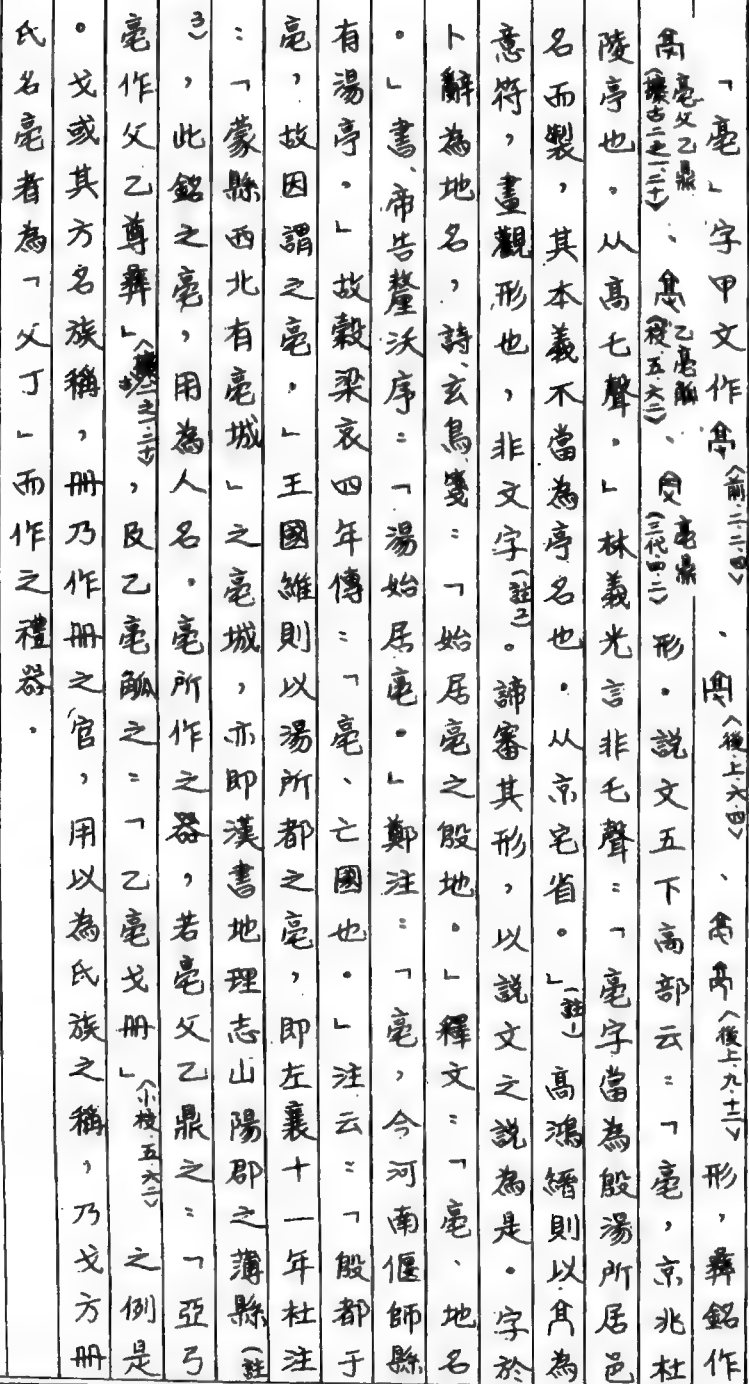 「亳」字甲文作〈前.二.二.四〉、〈後.上.六.四〉、〈後上.九.十二〉形，彝銘作
亳父乙鼎〈攈古二之一.二十〉、乙亳觚〈小校.五.六二〉、亳鼎〈三代四.二〉形。說文五下高部云：「亳，京兆杜
陵亭也。从高乇聲。」林義光言非乇聲：「亳字當為殷湯所居邑
名而製，其本義不當為亭名也。从京宅省。」〈註1〉高鴻縉則以為
意符，畫觀形也，非文字〈註2〉。諦審其形，以說文之說為是。字於
卜辭為地名，詩、玄鳥箋：「始居亳之殷地。」釋文：「亳、地名
。」書、帝告釐沃序：「湯始居亳。」鄭注：「亳，今河南偃師縣
有湯亭。」故穀梁哀四年傳：「亳、亡國也。」注云：「殷都于
亳，故因謂之亳。」王國維則以湯所都之亳，即左襄十一年杜注
：「蒙縣西北有亳城」之亳城，亦即漢書地理志山陽郡之薄縣〈註
3〉，此銘之亳，用為人名。亳所作之器，若亳父乙鼎之：「亞弓
亳作父乙尊彝」〈攈古二之一.二十〉，及乙亳觚之：「乙亳戈冊」〈小校.五.六二〉之例是
。戈或其方名族稱，冊乃作冊之官，用以為氏族之稱，乃戈方冊
氏名亳者為「父丁」而作之禮器。